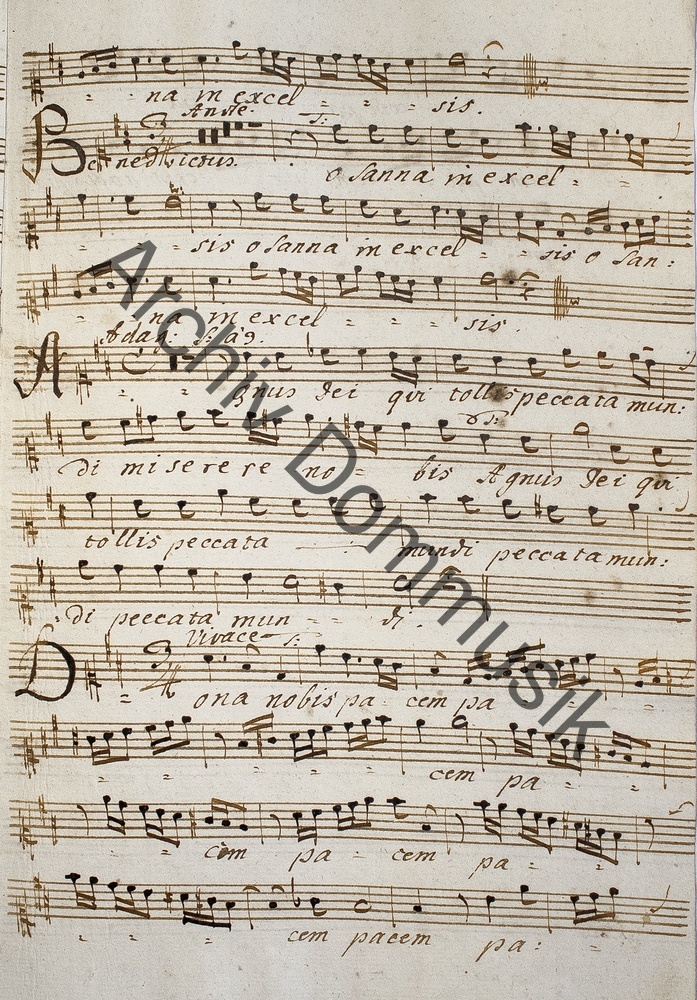 na in excel - - - sis.
Andte. S:
Benedictus. o Sanna in excel -
- - sis o Sanna in excel - - sis o San:
na in excel - - - sis.
Adag:
Agnus Dei qui tollis peccata mun:
di miserere no - bis Agnus Dei qui
tollis peccata mundi peccata mun:
di peccata mun - - di.
Vivace S:
Dona nobis pa cem pa
- - - cem pa -
- - cem pa - cem pa -
- - - cem pacem pa: -
Archiv Dommusik